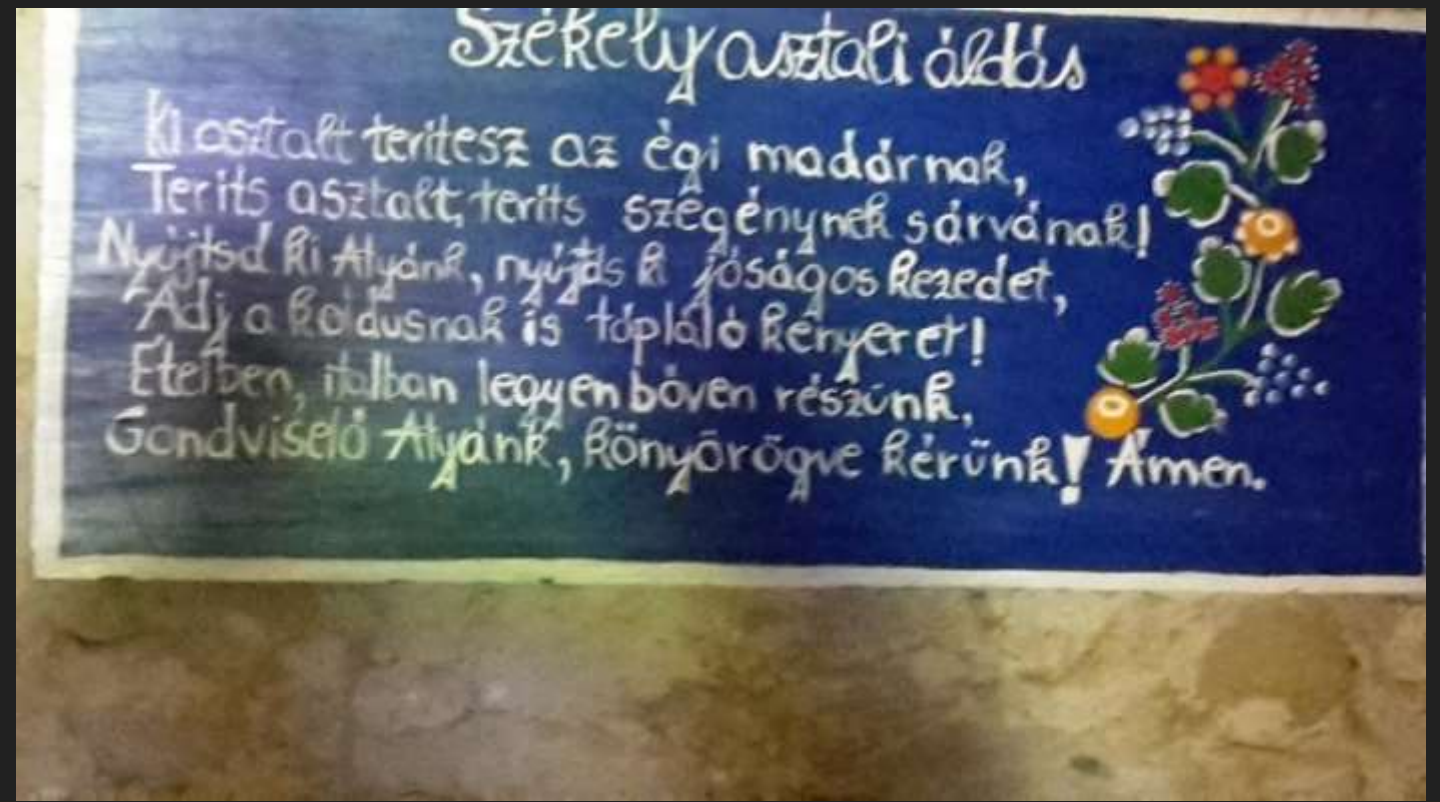 Székely asztali áldás
Ki asztalt teritesz az égi madárnak,
Terits asztalt, terits szegénynek sárvának!
Nyújtsd ki Atyánk, nyújts ki jóságos kezedet,
Adj a koldusnak is tápláló kenyeret!
Ételben, italban legyen bőven részünk,
Gondviselő Atyánk, könyörögve kérünk! Ámen.